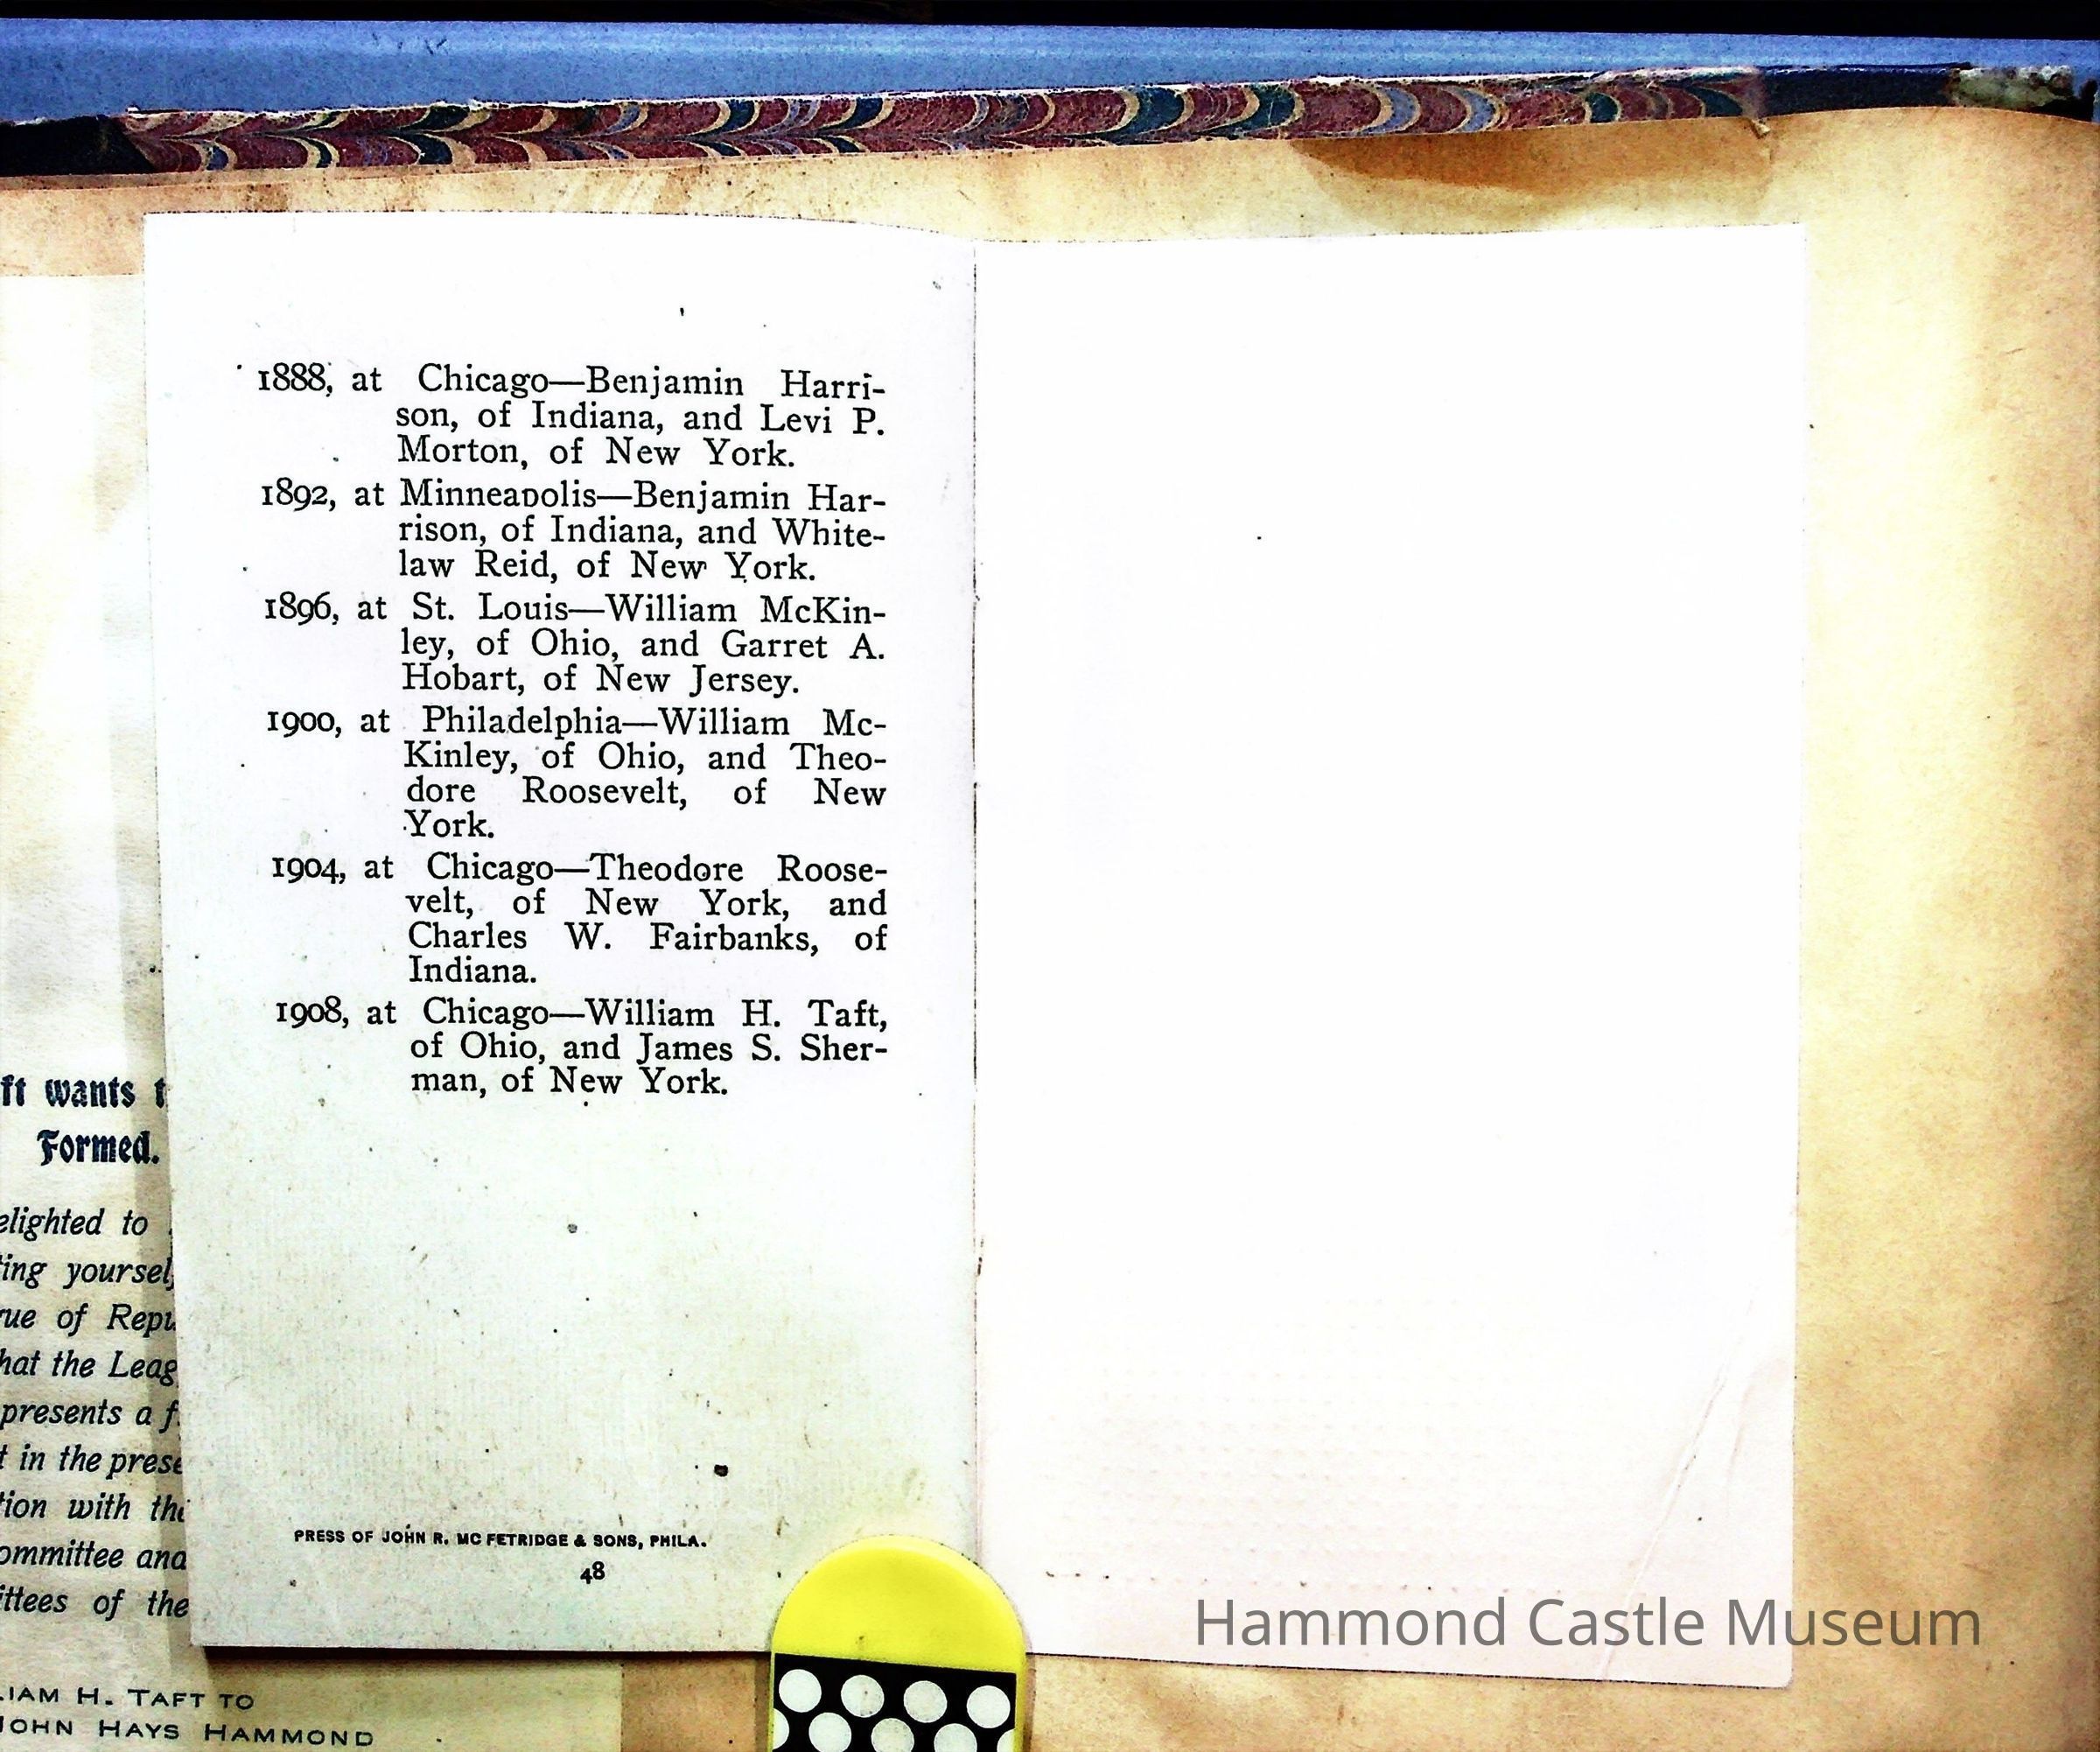 1888, at Chicago—Benjamin Harri-
son, of Indiana, and Levi P.
Morton, of New York.
1892, at Minneapolis—Benjamin Har-
rison, of Indiana, and White-
law Reid, of New York.
1896, at St. Louis—William McKin-
ley, of Ohio, and Garret A.
Hobart, of New Jersey.
1900, at Philadelphia—William Mc-
Kinley, of Ohio, and Theo-
dore Roosevelt, of New
York.
1904, at Chicago—Theodore Roose-
velt, of New York, and
Charles W. Fairbanks, of
Indiana.
1908, at Chicago—William H. Taft,
of Ohio, and James S. Sher-
man, of New York.
PRESS OF JOHN R. MC FETRIDGE & SONS, PHILA.
48
wants
Formed.
to
of
the
presents a
in the
with
and
of the
H. TAFT TO
JOHN HAYS HAMMOND
Hammond Castle Museum